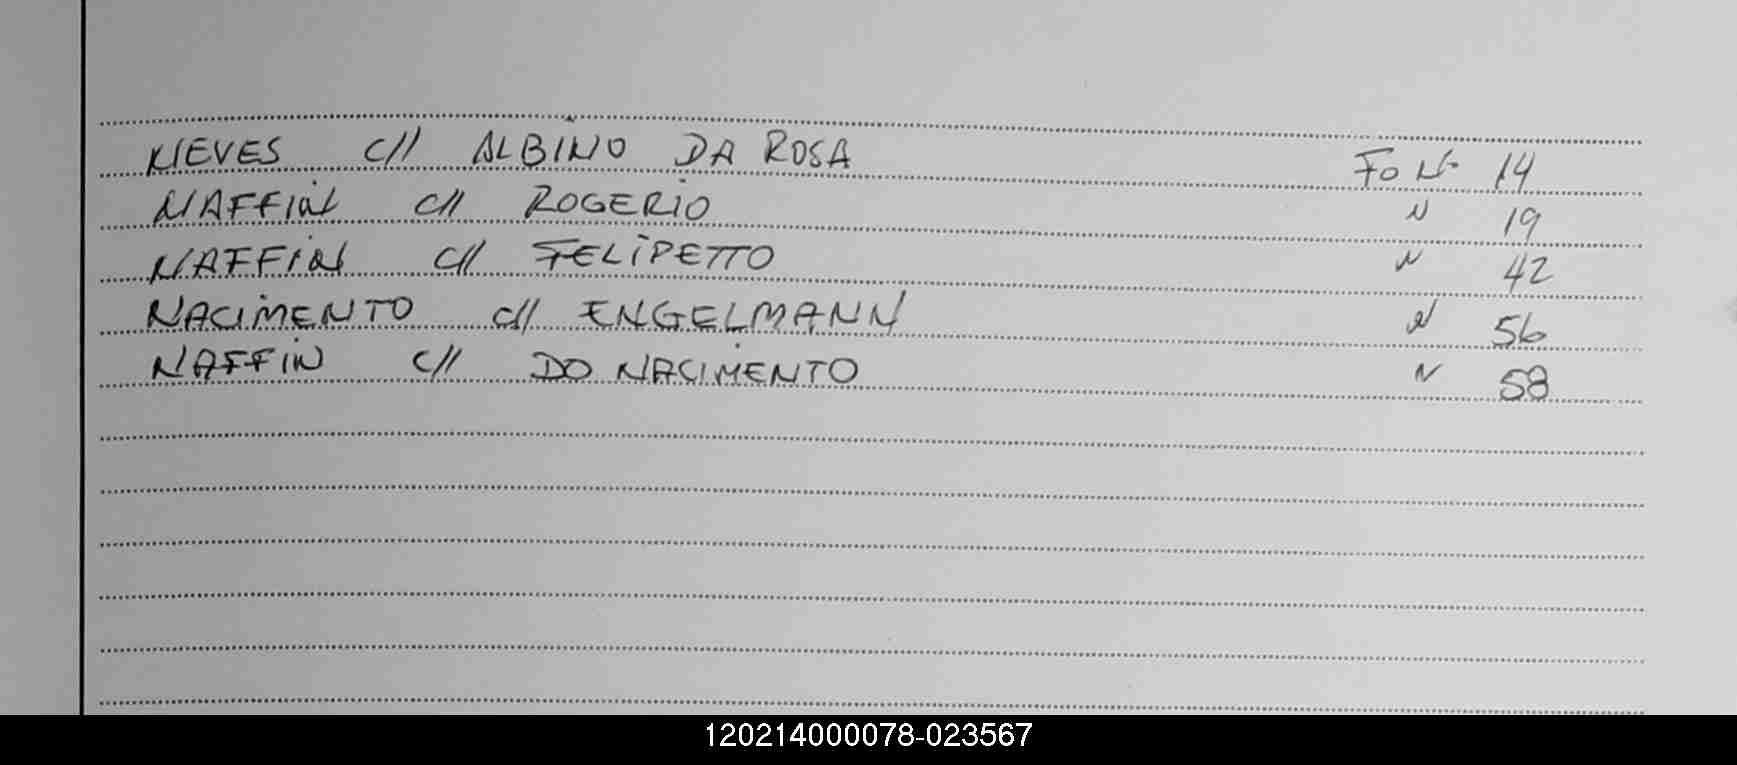 NIEVES C// ALBINO DA ROSA Fo Nº 14
NAFFIN C// ROGERIO " 19
NAFFIN C// FELIPETTO " 42
NACIMENTO C// ENGELMANN " 56
NAFFIN C// DO NACIMENTO " 58
120214000078-023567